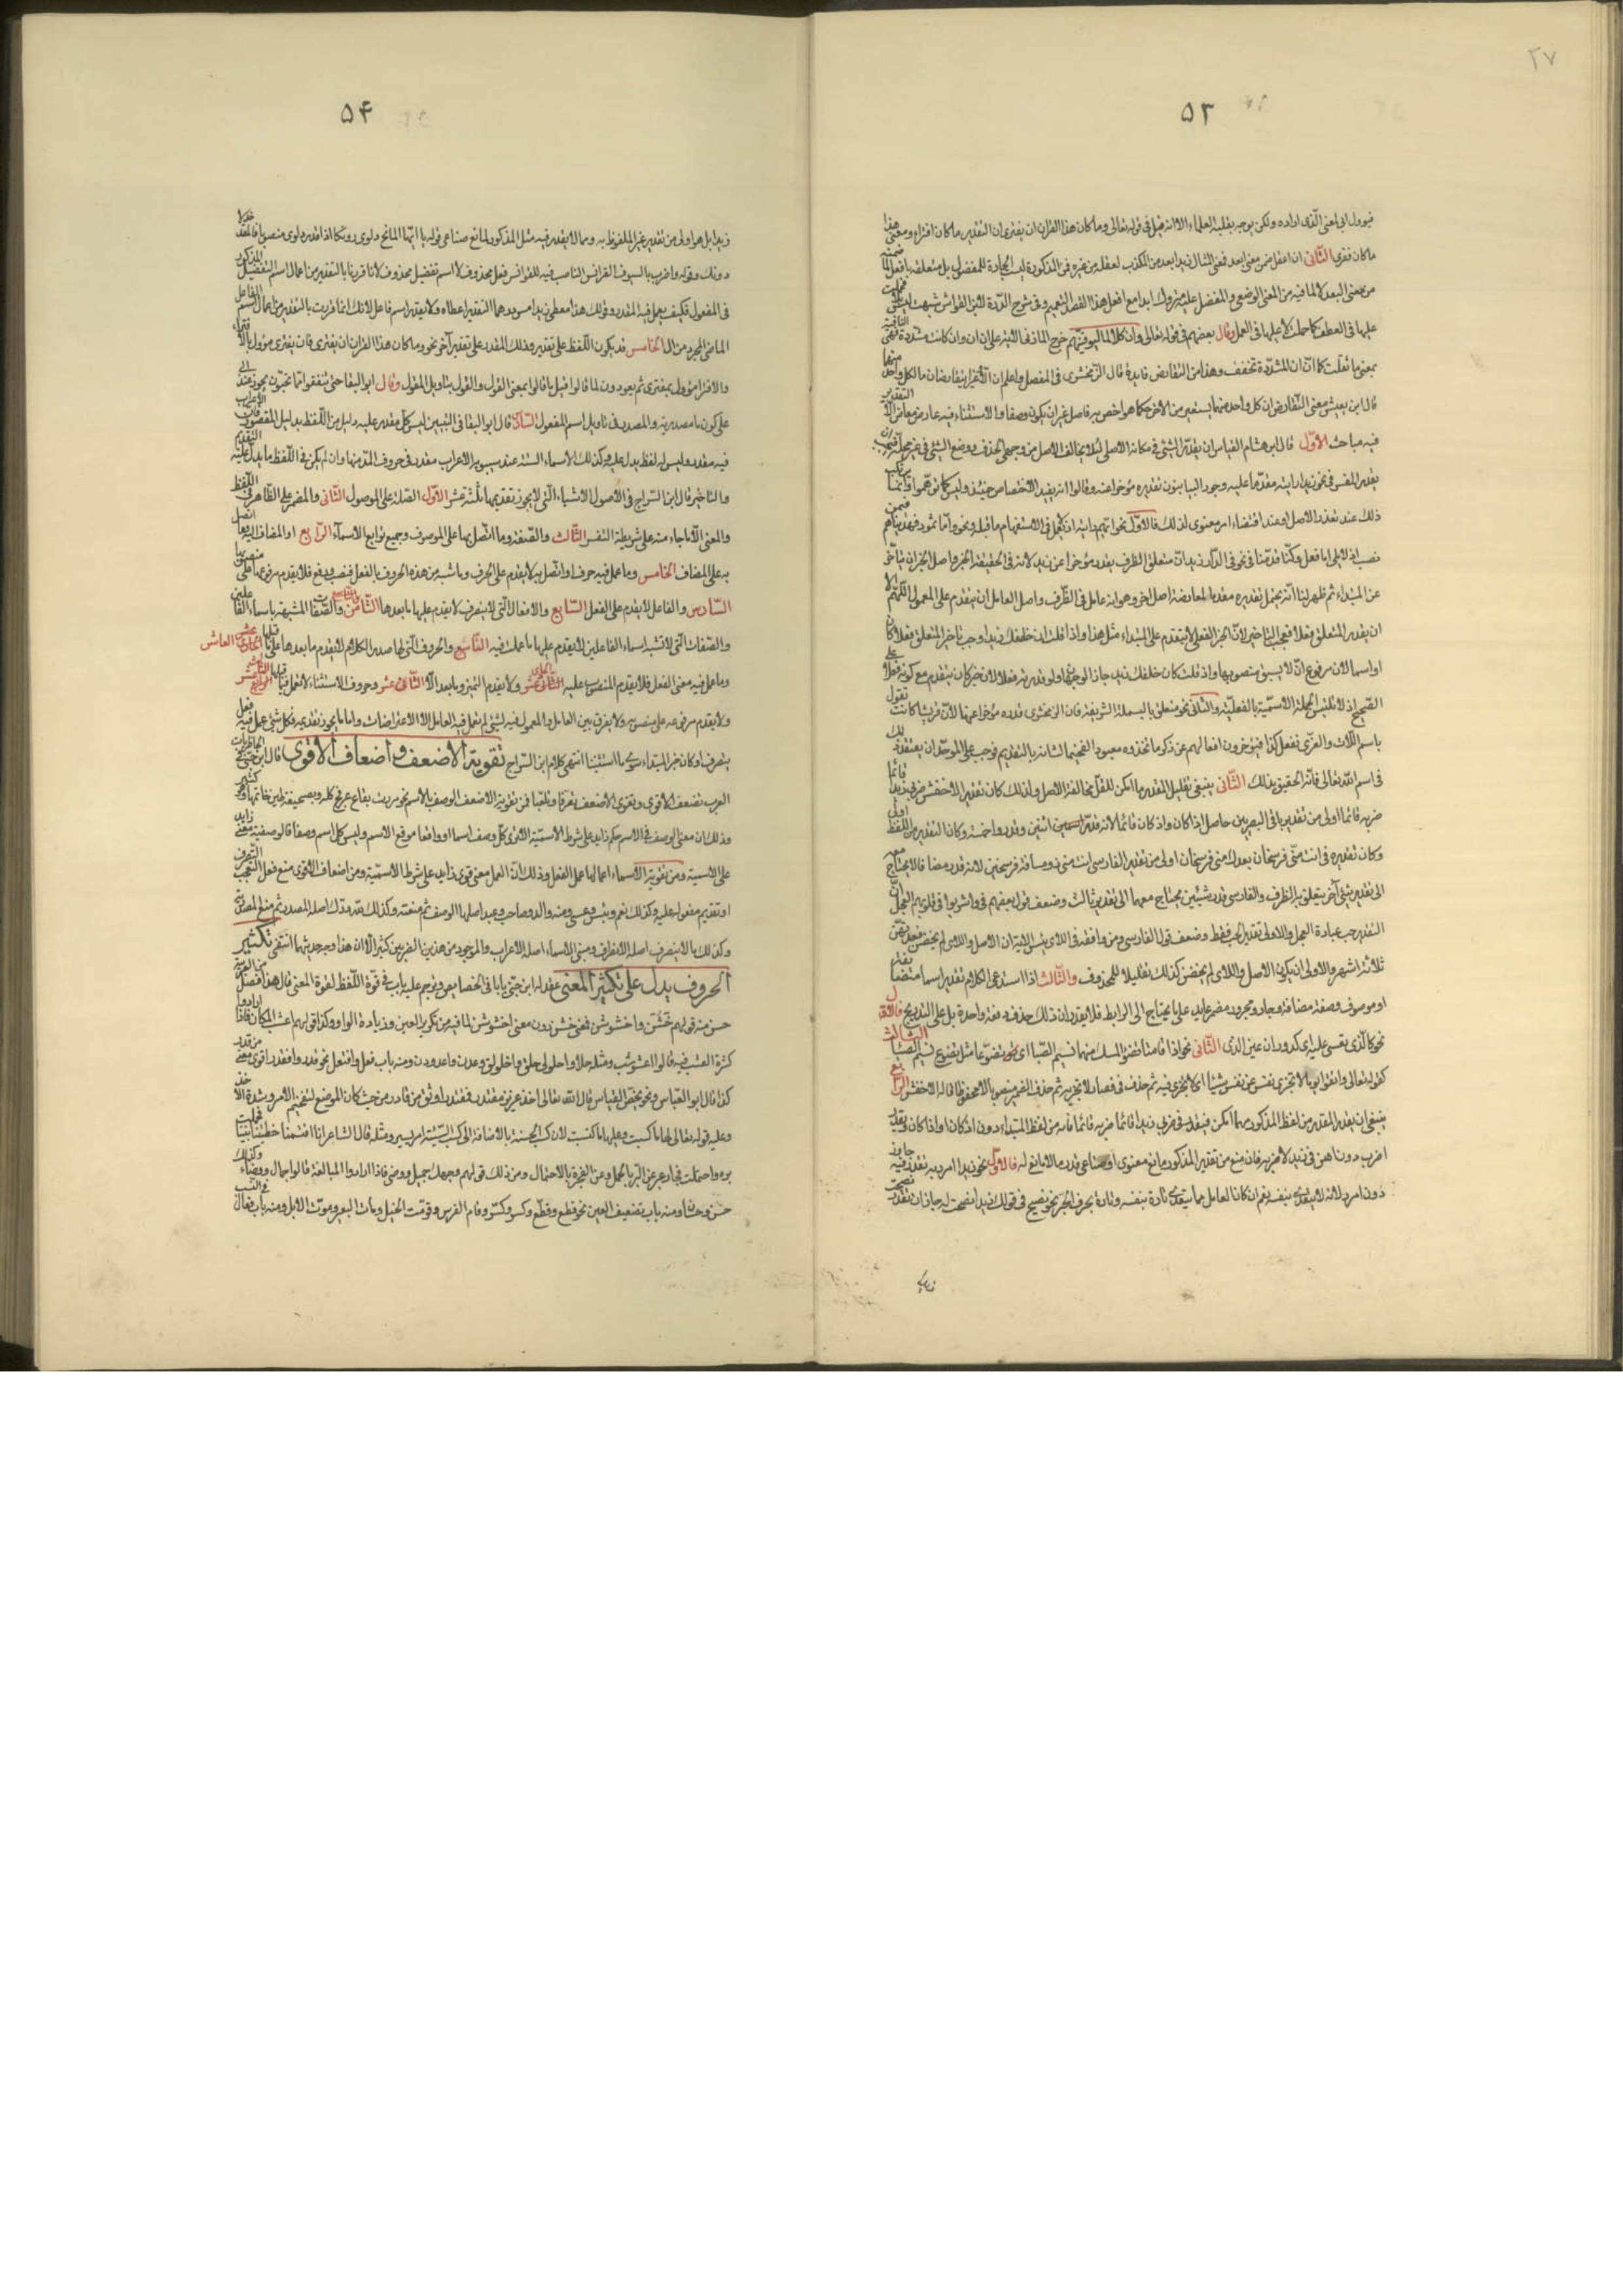 ٢٧
٥٣
فيؤول الى المعنى الذى اراده ولكن يوجه بقلبه العلماء الا انه قيل فى قوله تعالى وما كان هذا القران ان يفترى ان التقدير ما كان افتراء ومعنى هذا
ما كان مفترى الثانى ان افعل ضمن معنى ابعد فمعنى المثال زيد ابعد من الكذب لفضله من غيره فمن المذكورة ليست الجارة للمفضول بل متعلقة بافعل لما ضمنه
من معنى البعد لا لما فيه من المعنى الوضعى والمفضل عليه متروك ابدا مع افعل هذا لقصد التعميم
عليها فى العطف كما حملت لا عليها فى العمل وقال بعضهم فى قوله تعالى وان كلا لما ليوفينهم خرج المازنى الاية على ان ان وان كانت مشددة فهى النافية
بمعنى ما ثقلت كما ان ان المشددة تخفف وهذا من التقارض فايدة قال الزمخشرى فى المفصل واعلم ان الا وغيرا يتقارضان ما لكل واحد منهما
قال ابن يعيش معنى التقارض ان كل واحد منهما يستعير من الاخر حكما هو اخص به فاصل غير ان يكون وصفا والاستثناء فيه عارض معار من الا التقدير
فيه مباحث الاول قال ابن هشام القياس ان يقدر الشئ فى مكانه الاصلى لئلا يخالف الاصل من وجهين الحذف ووضع الشئ فى غير محله فيجب ان
يقدر المفسر فى نحو زيدا رايته مقدما عليه وجوز البيانيون تقديره مؤخرا عنه وقالوا انه يفيد الاختصاص حينئذ وليس كما توهموا وانما يرتكب
ذلك عند تعذر الاصل او عند اقتضاء امر معنوى لذلك فالاول نحو ايهم رايته اذ لا يعمل فى الاستفهام ما قبله ونحو واما ثمود فهديناهم فيمن
نصب اذ لا يلى اما فعل وكنا قدمنا فى نحو فى الدار زيد ان متعلق الظرف يقدر مؤخرا عن زيد لانه فى الحقيقة الخبر واصل الخبر ان يتاخر
عن المبتداء ثم ظهر لنا انه يحتمل تقديره مقدما لمعارضة اصل اخر وهو انه عامل فى الظرف واصل العامل ان يتقدم على المعمول اللهم الا
ان يقدر المتعلق فعلا فيجب التاخير لان الخبر الفعلى لا يتقدم على المبتداء مثل هذا واذا قلت ان خلفك زيدا وجب تاخير المتعلق فعلا كان
او اسما لان مرفوع ان لا يسبق منصوبها واذا قلت كان خلفك زيد جاز الوجهان ولو قدرته فعلا لان خبر كان يتقدم مع كونه فعلا على
الصحيح اذ لا تلتبس الجملة الاسمية بالفعلية والثانى نحو متعلق باء البسملة الشريفة فان الزمخشرى قدره مؤخرا عنها لان قريشا كانت تقول
باسم اللات والعزى نفعل كذا فيؤخرون افعالهم عن ذكر ما اتخذوه معبودا تفخيما لشانه بالتقديم فوجب على الموحد ان يعتقد ذلك
فى اسم الله تعالى فانه الحقيق بذلك الثانى ينبغى تقليل المقدر ما امكن لتقل مخالفة الاصل ولذلك كان تقدير الاخفش ضربى زيدا قائما
ضربه قائما اولى من تقدير باقى البصريين حاصل اذا كان واذ كان قائما لانه قدر اثنين وقدروا خمسة وكان التقدير من اللفظ اولى
وكان تقديره فى انت منى فرسخان بعدك منى فرسخان اولى من تقدير الفارسى انت منى ذو مسافة فرسخين لانه قدر مضافا لا يحتاج معه
الى تقدير شئ آخر يتعلق به الظرف والفارسى قدر شيئين يحتاج معهما الى تقدير ثالث وضعف قول بعضهم فى واشربوا فى قلوبهم العجل ان
التقدير حب عبادة العجل والاولى تقدير الحب فقط وضعف قول الفارسى ومن وافقه فى اللائى يئسن الاية ان الاصل واللائى لم يحضن فعدتهن
ثلاثة اشهر والاولى ان يكون الاصل واللائى لم يحضن كذلك تقليلا للمحذوف والثالث اذا استدعى الكلام تقدير اسماء متضايفة
او موصوف وصفة مضافة وجار ومجرور مضمر عايد على ما يحتاج الى الرابط فلا يقدر ان ذلك حذف دفعة واحدة بل على التدريج فالاول
نحو كالذى يغشى عليه اى كدوران عين الذى الثانى نحو اذا قامتا تضوع المسك منهما نسيم الصبا اى تضوعا مثل تضوع نسيم الصبا الثالث
كقوله تعالى واتقوا يوما لا تجزى نفس عن نفس شيئا اى لا تجزى فيه ثم حذف فى فصار لا تجزيه ثم حذف الضمير منصوبا لا مخفوضا قاله الاخفش الرابع
ينبغى ان يقدر المقدر من لفظ المذكور مهما امكن فيقدر فى ضربى زيدا قائما ضربه قائما فانه من لفظ المبتداء دون اذ كان او اذا كان ويقدر
اضرب دون اهن فى زيدا اضربه فان منع من تقدير المذكور مانع معنوى او صناعى قدر ما لا مانع له فالاول نحو زيدا امرر به تقدر فيه جاوز
دون امرر لانه لا يتعدى بنفسه نعم ان كان العامل مما يتعدى تارة بنفسه وتارة بحرف الجر نحو نصح فى قولك زيدا نصحت له جاز ان تقدر نصحت
٥۴
زيدا بل هو اولى من تقدير غير الملفوظ به ومما لا يقدر فيه مثل المذكور لمانع صناعى قوله يا ايها المائح دلوى دونكا اذا قدر دلوى منصوبا فالمقدر خذ لا
دونك وقوله واضرب بالسيوف القوانسا الناصب فيه للقوانس فعل محذوف لا اسم تفضيل محذوف لانا فررنا بالتقدير من اعمال اسم التفضيل المذكور
فى المفعول فكيف يعمل فيه المقدر وقولك هذا معطى زيد امس درهما التقدير اعطاه ولا يقدر اسم فاعل لانك انما فررت بالتقدير من اعمال اسم الفاعل
الماضى المجرد من ال الخامس قد يكون اللفظ على تقدير وذلك المقدر على تقدير آخر نحو وما كان هذا القران ان يفترى فان يفترى مؤول بالافتراء
والافتراء مؤول بمفترى ثم يعودون لما قالوا قيل ما قالوا بمعنى القول والقول بتاويل المقول وقال ابو البقا حتى تنفقوا مما تحبون يجوز عند ابى على
كون ما مصدرية والمصدر فى تاويل اسم المفعول السادس قال ابو البقا فى التبيين ليس كل مقدر عليه دليل من اللفظ بدليل المقصور فان الاعراب
فيه مقدر وليس له لفظ يدل عليه وكذلك الاسماء الستة عند سيبويه الاعراب مقدر فى حروف المد منها وان لم يكن فى اللفظ ما يدل عليه التقديم
والتاخير قال ابن السراج فى الاصول الاشياء التى لا يجوز تقديمها ثلثة عشر الاول الصلة على الموصول الثانى والمضمر على الظاهر فى اللفظ
والمعنى الا ما جاء منه على شريطة التفسير الثالث والصفة وما اتصل بها على الموصوف وجميع توابع الاسماء الرابع والمضاف اليه وما اتصل
به على المضاف الخامس وما عمل فيه حرف او اتصل به لا يقدم على الحرف وما شبه من هذه الحروف بالفعل فنصب ورفع فلا يقدم مرفوعها على منصوبها
السادس والفاعل لا يقدم على الفعل السابع والافعال التى لا تتصرف لا يقدم عليها ما بعدها الثامن والصفات المشبهة باسماء الفاعلين
والصفات التى لا تشبه اسماء الفاعلين لا يقدم عليها ما عملت فيه التاسع والحروف التى لها صدر الكلام لا يقدم ما بعدها على ما قبلها العاشر
وما عمل فيه معنى الفعل فلا يقدم المنصوب عليه الثانى عشر ولا يقدم التمييز وما بعد الا الثانى عشر وحروف الاستثناء لا تعمل فيما قبلها
ولا يقدم مرفوعه على منصوبه ولا يفرق بين العامل والمعمول فيه بشئ لم يعمل فيه العامل الا الاعتراضات واما ما يجوز تقديمه فكل شئ عمل فيه فعل
متصرف او كان خبر المبتداء سوى ما استثنينا انتهى كلام ابن السراج تقوية الاضعف واضعاف الاقوى قال ابن جنى فى الخاطريات
العرب تضعف الاقوى وتقوى الاضعف تصرفا وتلعبا فمن تقوية الاضعف الوصف بالاسم نحو مررت بقاع عرفج كله وبصحيفة طين خاتمها وهو كثير
وذلك ان معنى الوصف فى الاسم حكم زايد على شرط الاسمية الا ترى كل وصف اسما او واقعا موقع الاسم وليس كل اسم وصفا فالوصفية معنى زايد
على الاسمية ومن تقوية الاسماء اعمالها عمل الفعل وذلك ان العمل معنى قوى زايد على شرط الاسمية ومن اضعاف الاقوى منع فعل التعجب التصرف
او تقديم مفعوله عليه وكذلك نعم وبئس وعسى ومنه والد وصاحب وعبد اصلها الوصف ثم منعته وكذلك لله درك اصله المصدر ثم منع المصدرية
وكذلك ما لا ينصرف اصله الانصراف ومبنى الاسماء اصله الاعراب والموجود من هذين الضربين كثير الا ان هذا وجه حديثهما انتهى تكثير
الحروف يدل على تكثير المعنى عقد له ابن جنى بابا فى الخصايص وترجم عليه باب فى قوة اللفظ لقوة المعنى قال هذا فصل من العربية
حسن منه قولهم خشن واخشوشن فمعنى خشن دون معنى اخشوشن لما فيه من تكرير العين وزيادة الواو وكذا قولهم عشب المكان فاذا ارادوا
كثرة العشب فيه قالوا اعشوشب ومثله حلا واحلولى وخلق واخلولق وغدن واغدودن ومنه باب فعل وافتعل نحو قدر واقتدر فاقتدر اقوى معنى من قدر
كذا قال ابو العباس وهو محض القياس قال الله تعالى اخذ عزيز مقتدر فمقتدر اوثق من قادر من حيث كان الموضع لتفخيم الامر وشدة الاخذ
وعليه قوله تعالى لها ما كسبت وعليها ما اكتسبت لان كسب الحسنة بالاضافة الى كسب السيئة امر يسير ومثله قال الشاعر انا اقتسمنا خطتينا بيننا فحملت
برة واحتملت فجار عبر عن البر بالحمل وعن الفجرة بالاحتمال ومن ذلك قولهم رجل جميل ووضئ فاذا ارادوا المبالغة قالوا جمال ووضاء وكذلك
حسن وحسان ومنه باب تضعيف العين نحو قطع وقطع وكسر وكسر وقام الفرس وقومت الخيل ومات البعير وموتت الابل ومنه باب فعال فى النسب